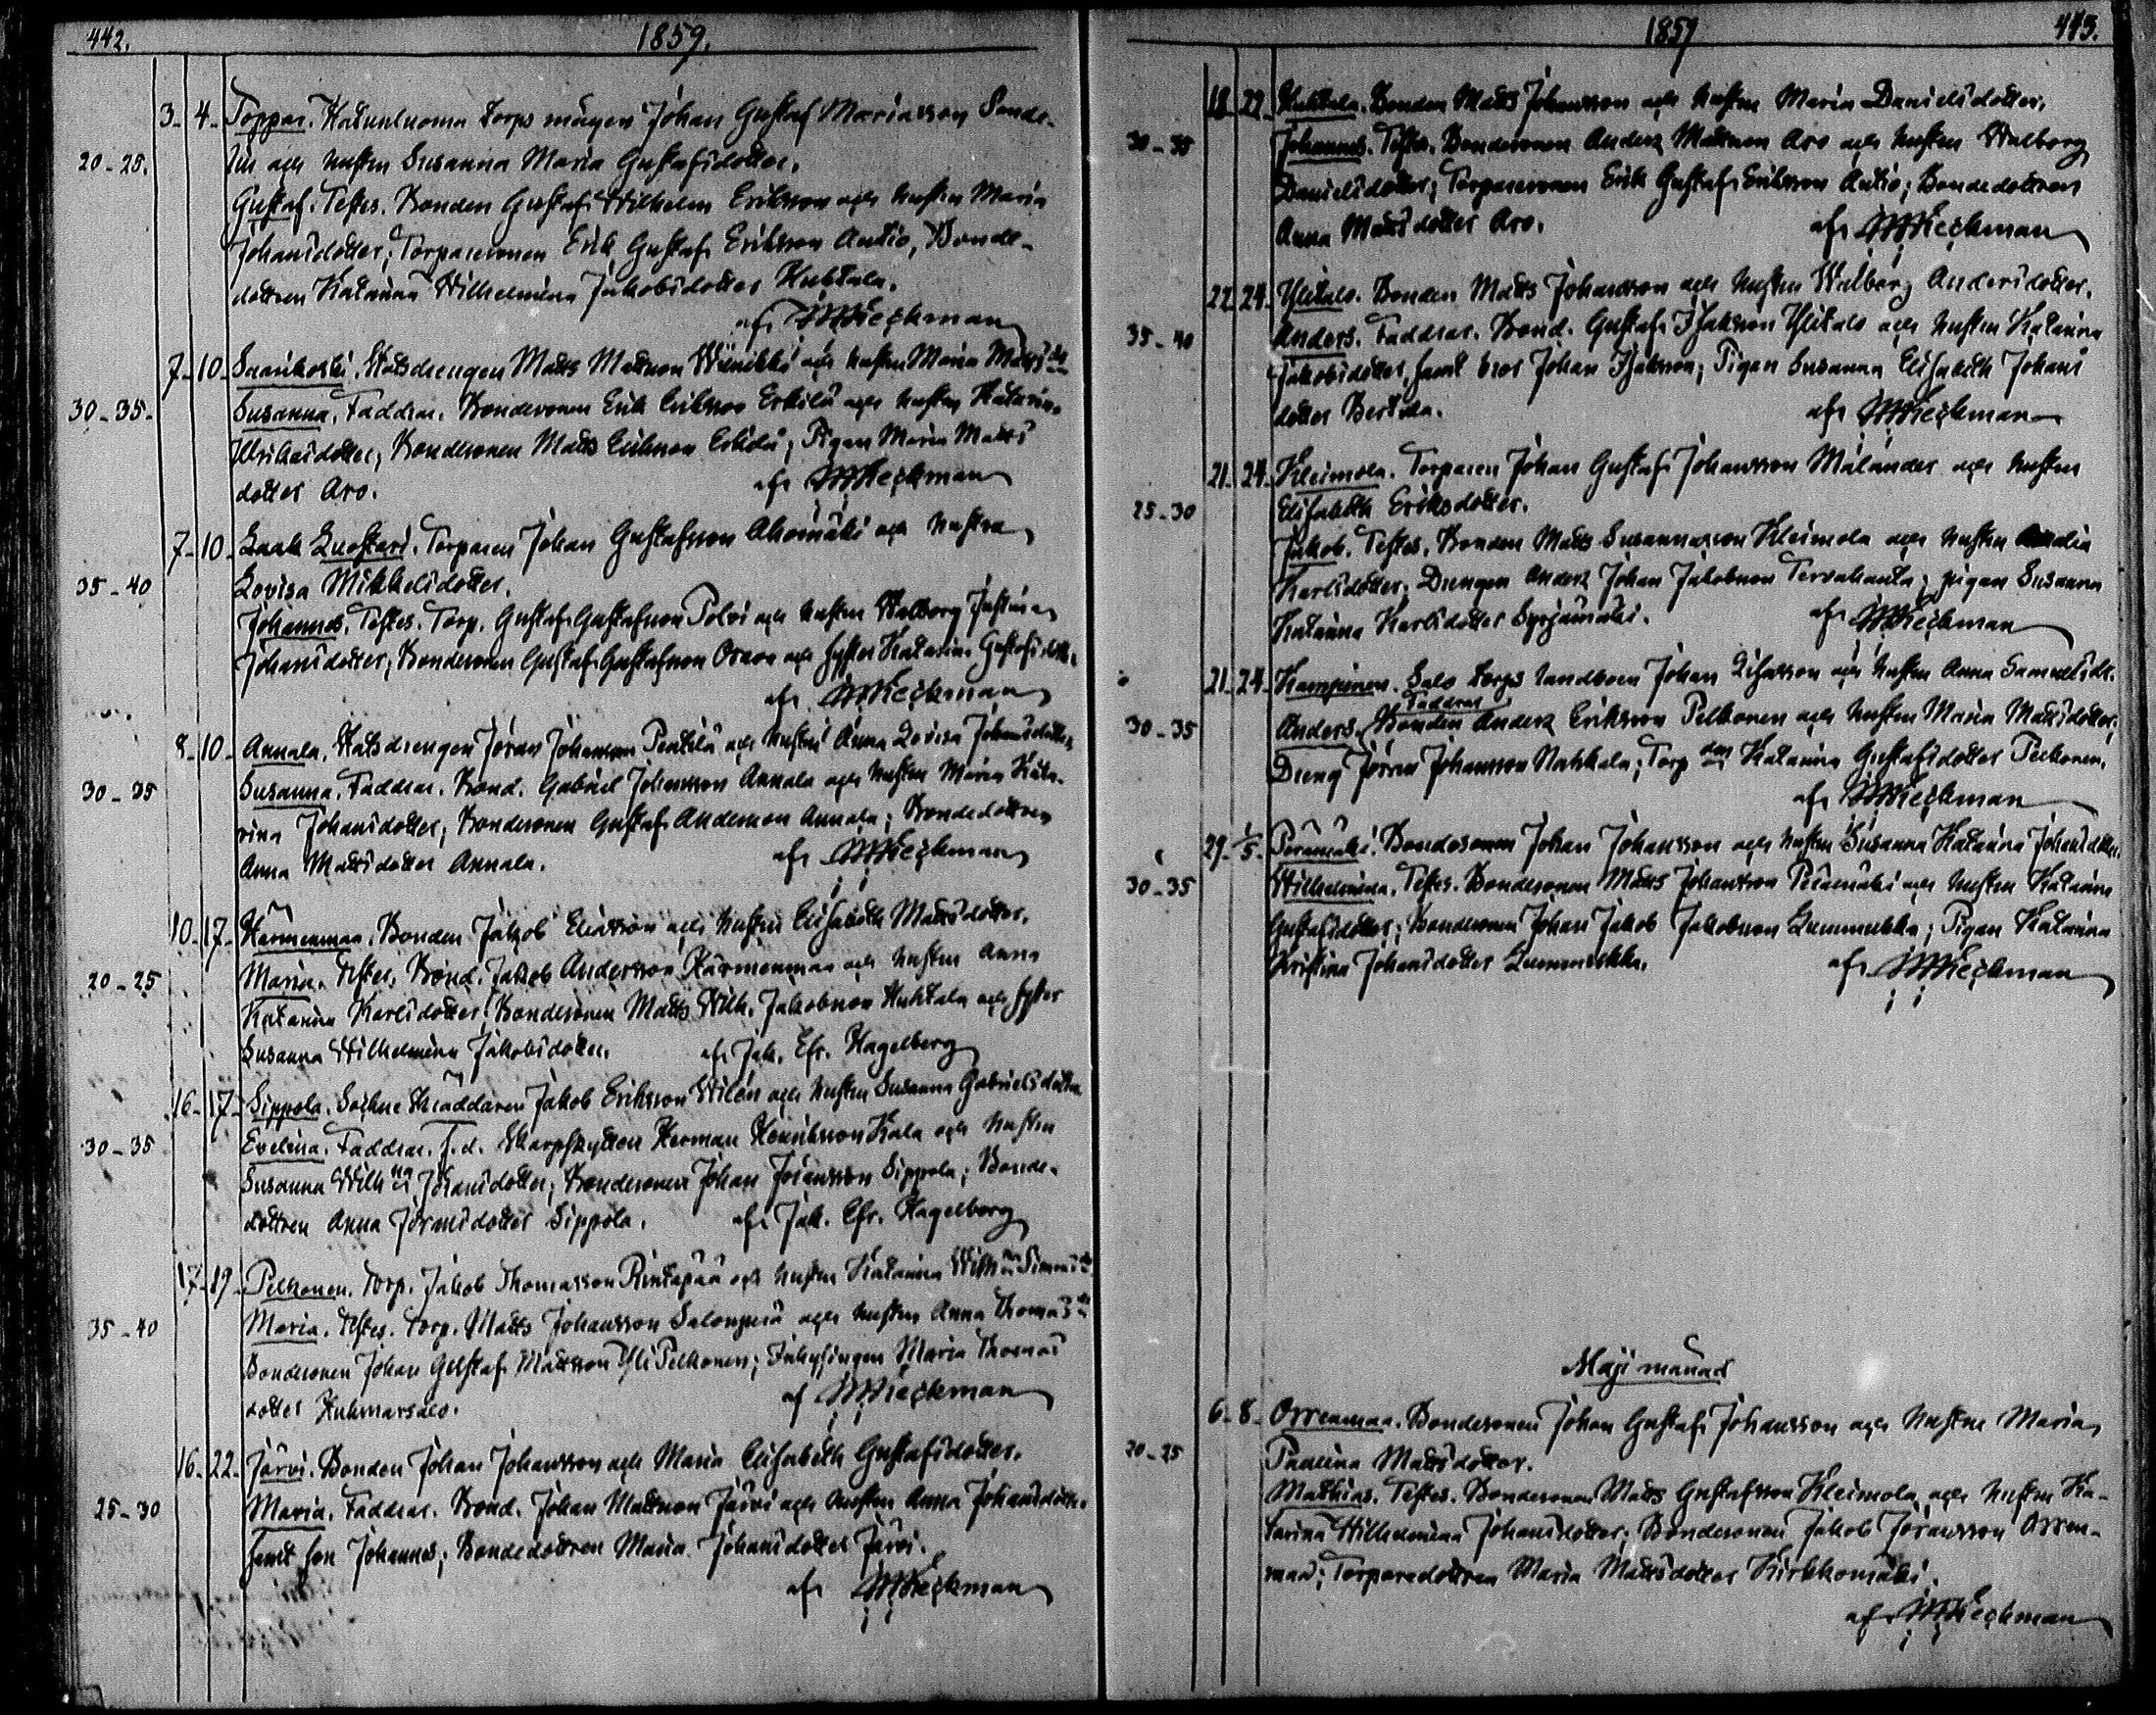 442. 1859.
3. 4. Toppar. Katunluoma Torps mågen Johan Gustaf Mariasson Sande-
20-25. lin och hustru Susanna Maria Gustafsdotter.
Gustaf. Testes. Bonden Gustaf Wilhelm Eriksson och hustru Maria
Johansdotter; Torparesonen Erik Gustaf Eriksson Autio, Bonde-
dottren Katarina Wilhelmina Jakobsdotter Huhtala.
af
7. 10. Saarikoski. Statsdrengen Matts Mattsson och hustru Maria Matts dr
30-35. Susanna. Faddrar. Bondesonen Erik Eriksson Erkilä och hustru Katarina
Ulrikasdotter; Bondesonen Matts Eriksson Erkilä; Pigan Maria Matts
dotter Aro. af
7. 10. Laak Luostari. Torparen Johan Gustafsson Ahomäki och hustru
35-40 Lovisa Mikkelsdotter.
Johannes. Testes. Torp. Gustaf Gustafsson Polvi och hustru Walborg Justina
Johansdotter; Bondesonen Gustaf Gustafsson och syster Katarina Gustafsdotter.
af
8. 10. Annala. Statsdrengen Jöran Johansson Penttilä och hustru Anna Lovisa Johansdotter
30-35 Susanna. Faddrar. Bond. Gabriel Johansson Annala och hustru Maria Kata-
rina Johansdotter; Bondesonen Gustaf Andersson Annala; Bondedottren
Anna Mattsdotter Annala. af
10. 17. Härmenmaa. Bonden Jakob Eliasson och hustru Elisabeth Mattsdotter.
20-25 Maria. Testes. Bond. Jakob Andersson Härmenmaa och hustru Anna
Katarina Karlsdotter; Bondesonen Matts Wilh. Jakobsson Huhtala och syster
Susanna Wilhelmina Jakobsdotter. af Jak. Efr. Hagelberg
16. 17. Sippola. Sockne Skräddaren Jakob Eriksson Wilén och hustru Susanna Gabrielsdotter
30-35 Evelina. Faddrar. F.d. Skarpskytten Herman Henriksson Kala och hustru
Susanna Wilhna Johansdotter; Bondesonen Johan Johansson Sippola; Bonde-
dottren Anna Jöransdotter Sippola. af Jak. Efr. Hagelberg
17. 19. Pelkonen. Torp. Jakob Thomasson Rintapää och hustru Katarina Wilhna Simonsdr
35-40 Maria. Testes. Torp. Matts Johansson Salonperä och hustru Anna Thomasdr
Bondesonen Johan Gustaf Mattsson Yli Pelkonen; Inhysingen Maria Thomas
dotter Kuhmarsalo. af
16. 22. Järvi. Bonden Johan Johansson och Maria Elisabeth Gustafsdotter.
25-30 Maria. Faddrar. Bond. Johan Mattsson Järvi och hustru Anna Johansdotter.
samt son Johannes; Bondedottren Maria Johansdotter Järvi.
af
1859 443.
18. 22. Huhtala. Bonden Matts Johansson och hustru Maria Danielsdotter.
30-35 Johannes. Testes. Bondesonen Anders Mattsson Aro och hustru Walborg
Danielsdotter; Torparesonen Erik Gustaf Eriksson Autio; Bondedottren
Anna Mattsdotter Aro. af
22. 24. Ylitalo. Bonden Matts Johansson och hustru Walborg Andersdotter.
35-40 Anders. Faddrar. Bond. Gustaf Isaksson Ylitalo och hustru Katarina
Jakobsdotter, samt bror Johan Isaksson; Pigan Susanna Elisabeth Johans
dotter Bertula. af
21. 24. Kleimola. Torparen Johan Gustaf Johansson Målander och hustru
25-30 Elisabeth Eriksdotter.
Jakob. Testes. Bonden Matts Susannasson Kleimola och hustru Amalia
Karlsdotter; Drengen Anders Johan Jakobsson Tervahauta; pigan Susanna
Katarina Karlsdotter Syrjämäki. af
21. 24. Kamppinen. Salo Torps landbon Johan och hustru Anna Samuelsdr.
30-35 Anders. Faddrar Bonden Anders Eriksson Pelkonen och hustru Maria Mattsdotter;
Dreng Jöran Johansson Nahkala; Torp dott Katarina Gustafsdotter Pelkonen.
af
29. 1/5. Perämäki. Bondesonen Johan Johansson och hustru Susanna Katarina Johansdotter.
30-35 Wilhelmina. Testes. Bondesonen Matts Johansson Perämäki och hustru Katarina
Gustafsdotter; Bondesonen Johan Jakob Jakobsson Lummukka; Pigan Katarina
Kristina Johansdotter Lummukka. af
Maji månad
6. 8. Orrenmaa. Bondesonen Johan Gustaf Johansson och hustru Maria
20-25 Paulina Mattsdotter.
Mathias. Testes. Bondesonen Matts Gustafsson Kleimola och hustru Ka-
tarina Wilhelmina Johansdotter; Bondesonen Jakob Jöransson Orren-
maa; Torparedottren Maria Mattsdotter Kirkkomäki.
af